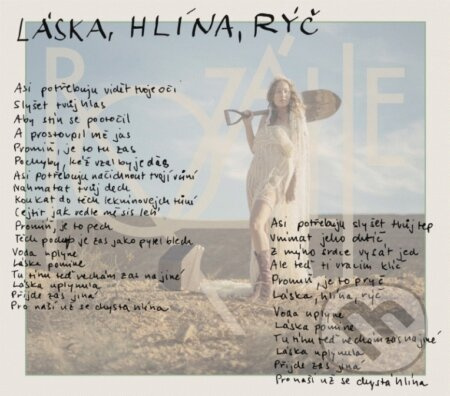 LÁSKA, HLÍNA, RÝČ
ROZÁLIE
Asi potřebuju vidět tvoje oči
Slyšet tvůj hlas
Aby stín se pootočil
A prostoupil mě jas
Promiň, je to tu zas
Pochyby, kéž vzal by je ďas
Asi potřebuju načichnout tvojí vůní
Nahmatat tvůj dech
Koukat do těch leknínovejch tůní
Cejtit jak vedle mě sis leh
Promiň, je to pech
Těch podob je zas jako pytel blech
Voda uplyne
Láska pomine
Tu tíhu teď nechám zas na jiné
Láska uplynula
Přijde zas jiná
Pro naši už se chystá hlína
Asi potřebuju slyšet tvůj tep
Vnímat jeho
Z mýho srdce vysát jed
Ale teď ti vracím klíč
Promiň, je to pryč
Láska, hlína, rýč
Voda uplyne
Láska pomine
Tu tíhu teď nechám zas na jiné
Láska uplynula
Přijde zas jiná
Pro naši už se chystá hlína